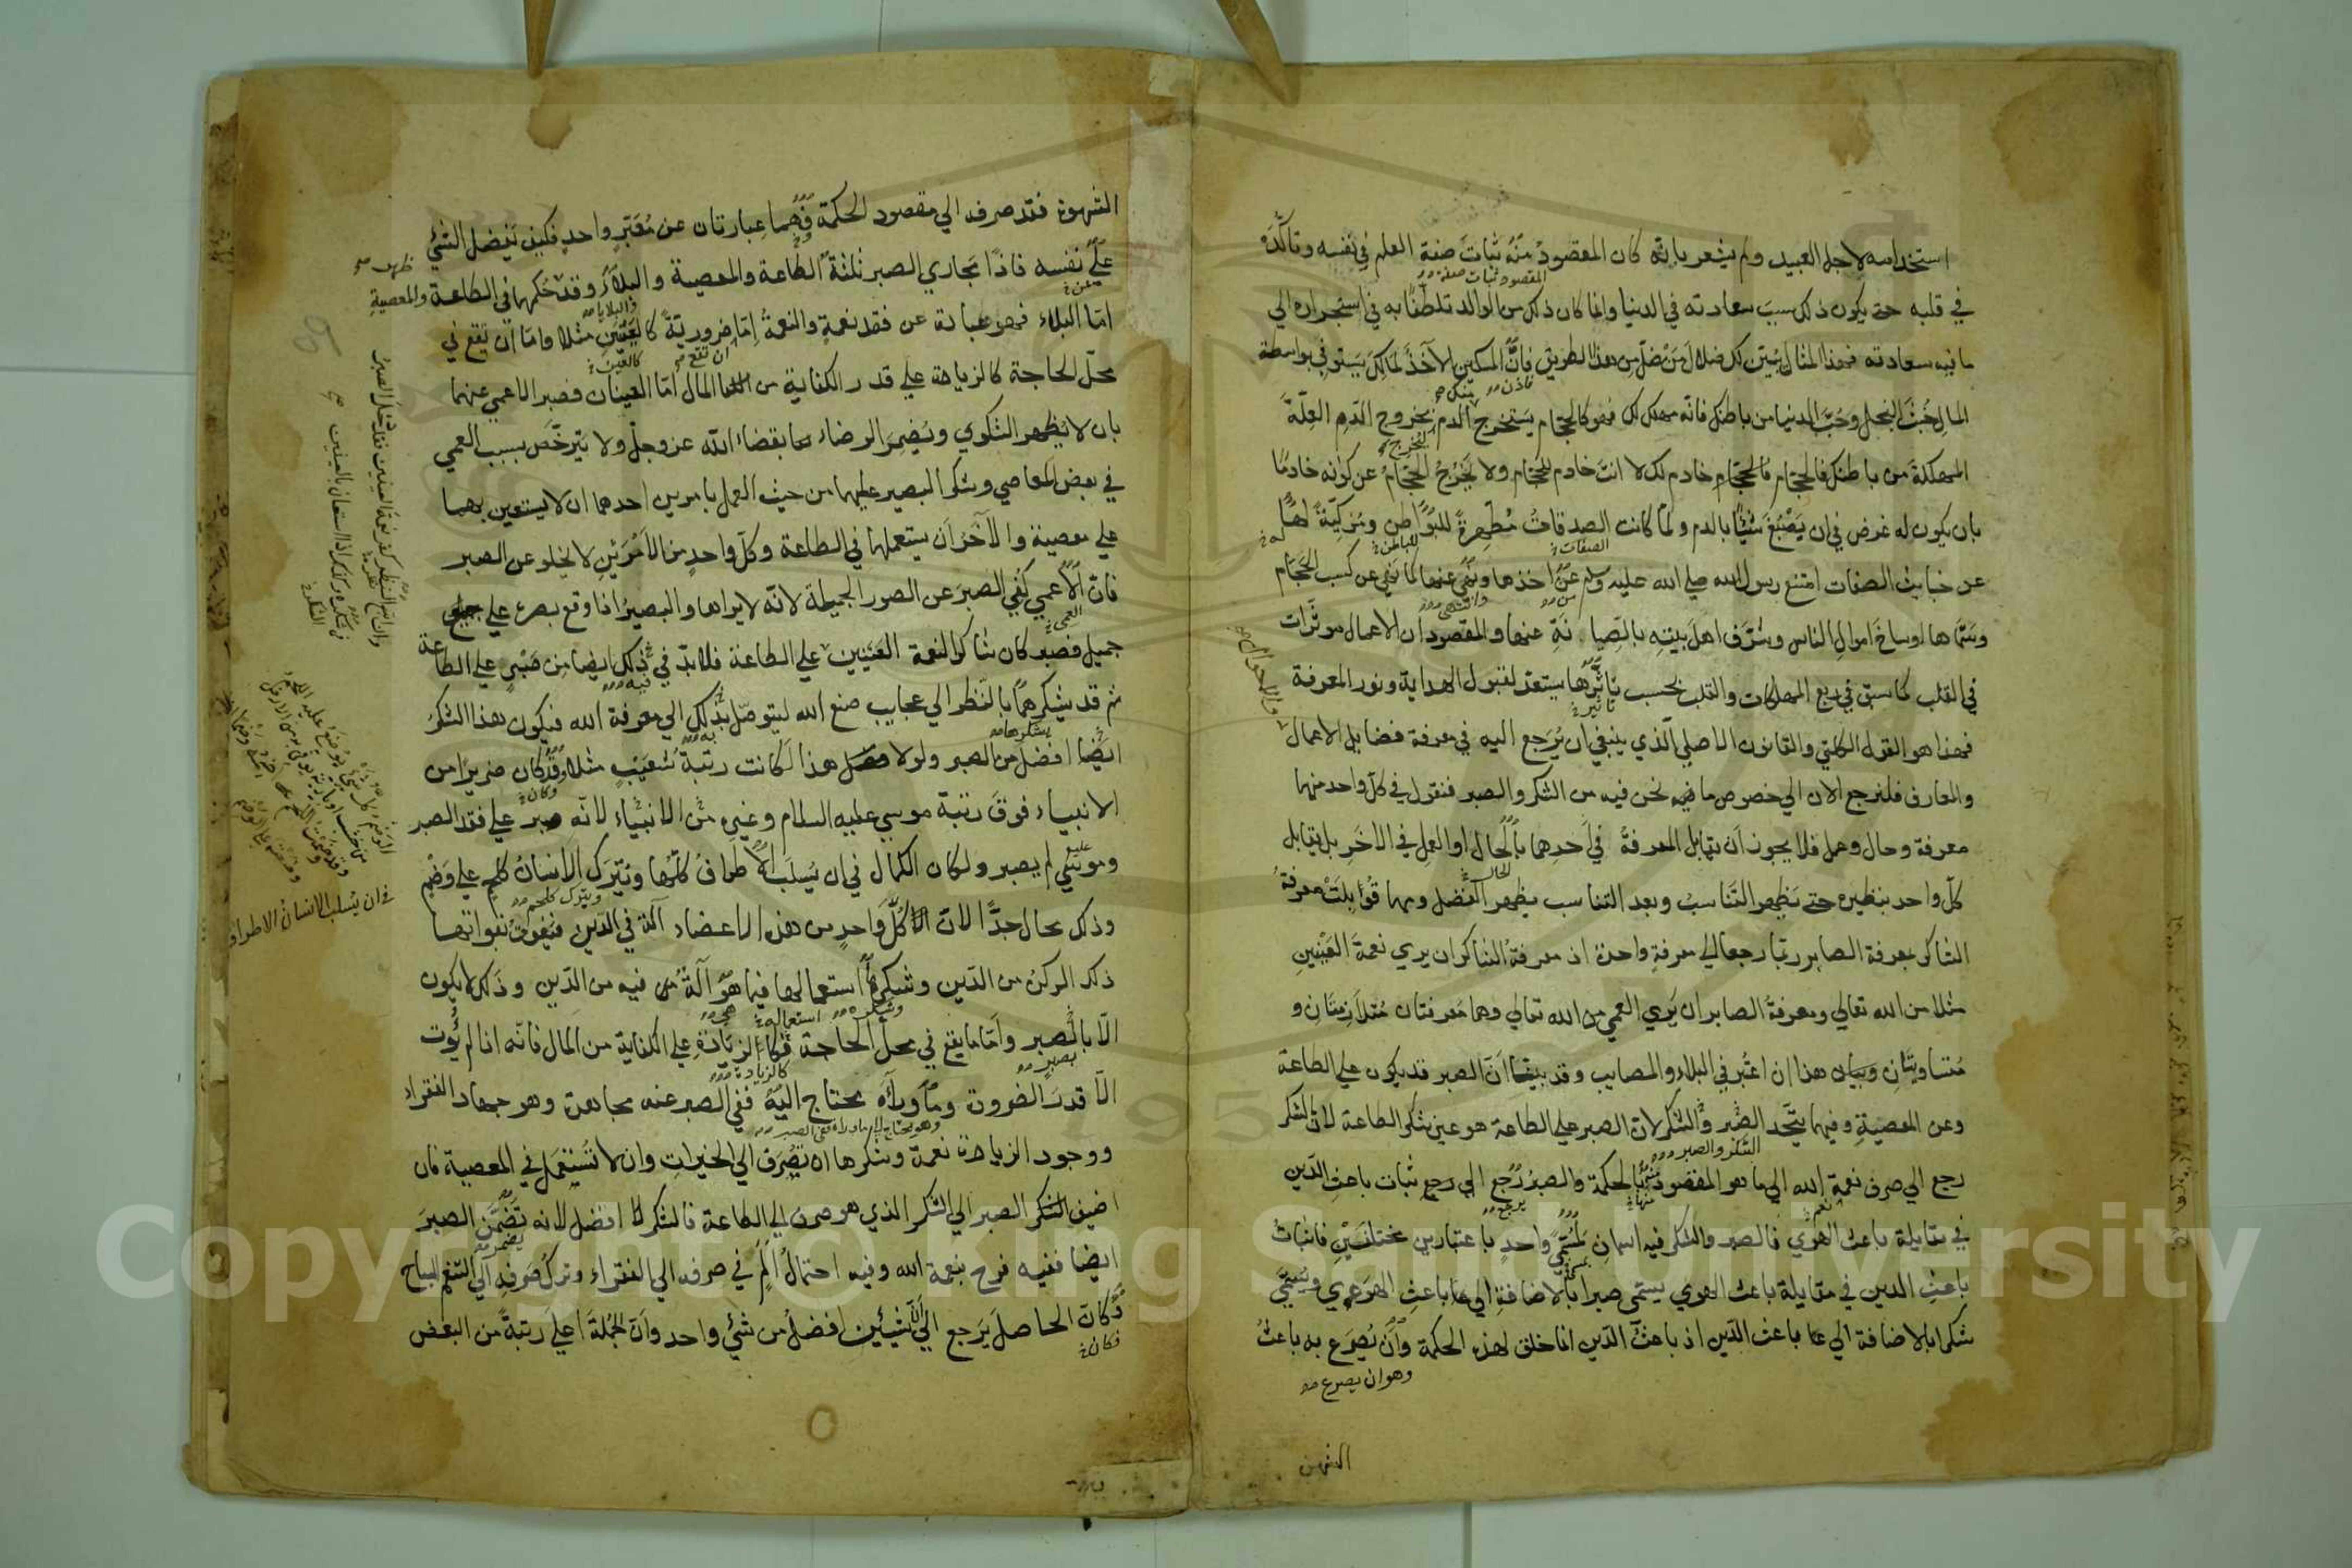 استخدامه لاجل العبيد ولم يشعر بانه كان المقصود منه ثبات صفة العلم في نفسه وتاكده
المقصود ثبات صفة
في قلبه حتى يكون ذلك سبب سعادته في الدنيا وانما كان ذلك من الوالد تلطفا به في استجراره الي
ما فيه سعادته فهذا المثال يبين لك ضلال من ضل من هذا الطريق فانّ المسكين الآخذ لمالك يستوفي بواسطة
المال خبث البخل وحب الدنيا من باطنك فانه مهلك لك فهو كالحجام يستخرج الدم بخروج الدم العلة
المهلكة من باطنك فالحجام خادم لك لا انت خادم للحجام ولا يخرج الحجام عن كونه خادما
بان يكون له غرض في ان يصبغ شيئا بالدم ولما كانت الصدقات مطهرة للبواطن ومزكية لها
الصفات للباطن
عن خبايث الصفات امتنع رسول الله صلي الله عليه وسلم عن اخذها ونهي عنها كما نهي عن كسب الحجام
وانتهى من
وسماها اوساخ اموال الناس وشرف اهل بيته بالصيانة عنها والمقصود ان الاعمال موثرات
في القلب كما سبق في ربع المهلكات والقلب بحسب تاثرها يستعد لقبول الهداية ونور المعرفة
تاثير
فهذا هو القول الكلي والقانون الاصلي الذي ينبغي ان يرجع اليه في معرفة فضايل الاعمال
والمعارف فلنرجع الان الي خصوص ما فيه نحن فيه من الشكر والصبر فنقول في كل واحد منهما
معرفة وحال وعمل فلا يجوز ان تقابل المعرفة في احدهما بالحال او العمل في الاخر بل يقابل
الحال
كل واحد بنظيره حتى يظهر التناسب وبعد التناسب يظهر الفضل ومهما قوبلت معرفة
الشاكر بمعرفة الصابر ربما رجعا الي معرفة واحدة اذ معرفة الشاكر ان يري نعمة العينين
مثلا من الله تعالي ومعرفة الصابر ان يري العمي من الله تعالي وهما معرفتان متلازمتان و
متساويتان وبيان هذا ان اعتبر في البلاء والمصايب وقد بينا ان الصبر قد يكون علي الطاعة
وعن المعصية وفيهما يتحد الصبر والشكر لان الصبر علي الطاعة هو عين شكر الطاعة لان الشكر
الشكر والصبر
رجع الي صرف نعمة الله الي ما هو المقصود منها بالحكمة والصبر رجع الي رجع ثبات باعث الدين
نعم منها يرجع
في مقابلة باعث الهوي فالصبر والشكر فيه اسمان لمسمى واحد باعتبارين مختلفين فاثبات
باعث الدين في مقابلة باعث الهوي يسمى صبرا بالاضافة الي باعث الهوي ويسمي
شكرا بالاضافة الي باعث الدين اذ باعث الدين انما خلق لهذه الحكمة وان يصرع به باعث
وهو ان يصرع
الشهوة
الشهوة فقد صرفه الي مقصود الحكمة فهما عبارتان عن معبر واحد فكيف يفضل الشيء
علي نفسه فاذا مجاري الصبر ثلثة الطاعة والمعصية والبلاء وقد حكمهما في الطاعة والمعصية
عن والبلايا ظهر
اما البلاء فهو عبارة عن فقد نعمة والنعمة اما ضرورية كالعينين مثلا واما ان يقع في
ان تقع كالعين
محل الحاجة كالزيادة علي قدر الكفاية من المال اما العينان فصبر الاعمي عنهما
بان لا يظهر الشكوي ويضمر الرضاء بقضاء الله عز وجل ولا يترخص بسبب العمي
في بعض المعاصي وشكر البصير عليهما من حيث العمل بامرين احدهما ان لا يستعين بهما
علي معصية والآخر ان يستعملهما في الطاعة وكل واحد من الامرين لا يخلو عن الصبر
فان الاعمي كفي الصبر عن الصور الجميلة لانه لا يراها والبصير اذا وقع بصره علي
العمي
جميل فصبر كان شاكرا لنعمة العينين علي الطاعة فلا بد في ذلك ايضا من صبر علي الطاعة
فيه
ثم قد يشكرهما بالنظر الي عجايب صنع الله ليتوصل بذلك الي معرفة الله فيكون هذا الشكر
يشكرها به
ايضا افضل من الصبر ولولا هذا لكانت رتبة شعيب مثلا وقد كان ضريرا من
وكان
الانبياء فوق رتبة موسي عليه السلام وغيره من الانبياء لانه صبر علي فقد البصر
وموسي لم يصبر ولكان الكمال في ان يسلب الاطراف كلها ويترك الانسان كلحم علي وضم
ويترك كلحم
وذلك محال جدا لان كل واحد من هذه الاعضاء آلة في الدين فيفوت بفواتها
ذلك الركن من الدين وشكرها استعمالها فيما هو آلة فيه من الدين وذلك لا يكون
وشكره استعماله هي
الّا بالصبر واما ما يقع في محل الحاجة فكالزيادة علي الكفاية من المال فانه اذا لم يؤت
بصبر كالزيادة
الّا قدر الضرورة وما وراءه يحتاج اليه ففي الصبر عنه مجاهدة وهو جهاد الفقراء
وهو يحتاج الي ما وراءه ففي الصبر
ووجود الزيادة نعمة وشكرها ان تصرف الي الخيرات وان لا تستعمل في المعصية فان
اضيف الصبر الي الشكر الذي هو صرف الي الطاعة فالشكر افضل لانه تضمن الصبر
يضمن
ايضا ففيه فرح بنعمة الله وفيه احتمال الم في صرفه الي الفقراء وترك صرفه الي التنعم المباح
وكان الحاصل يرجع الي ان شيئين افضل من شيء واحد وان الجملة اعلي رتبة من البعض
فكان
في ان يسلب الانسان الاطراف